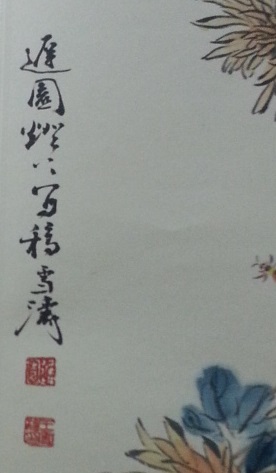 遲園燈下写稿雪濤